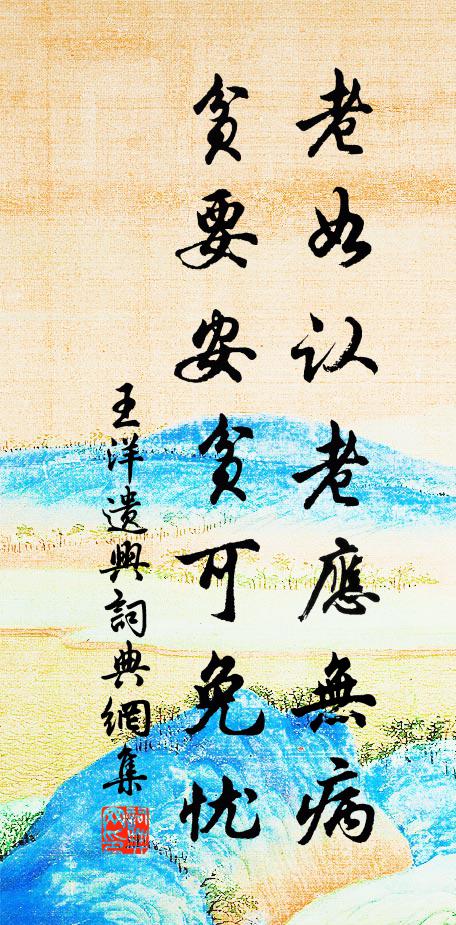 老如认老應無病
貧要安貧可免忧
王洋遺興詞典網集